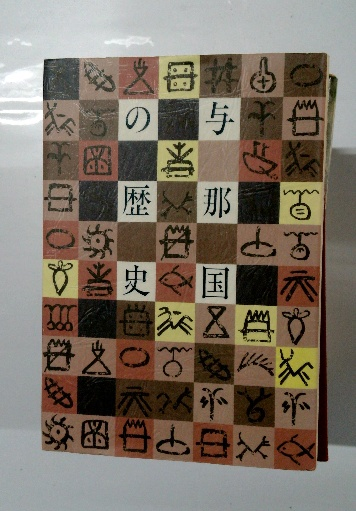 与那国
の歴史